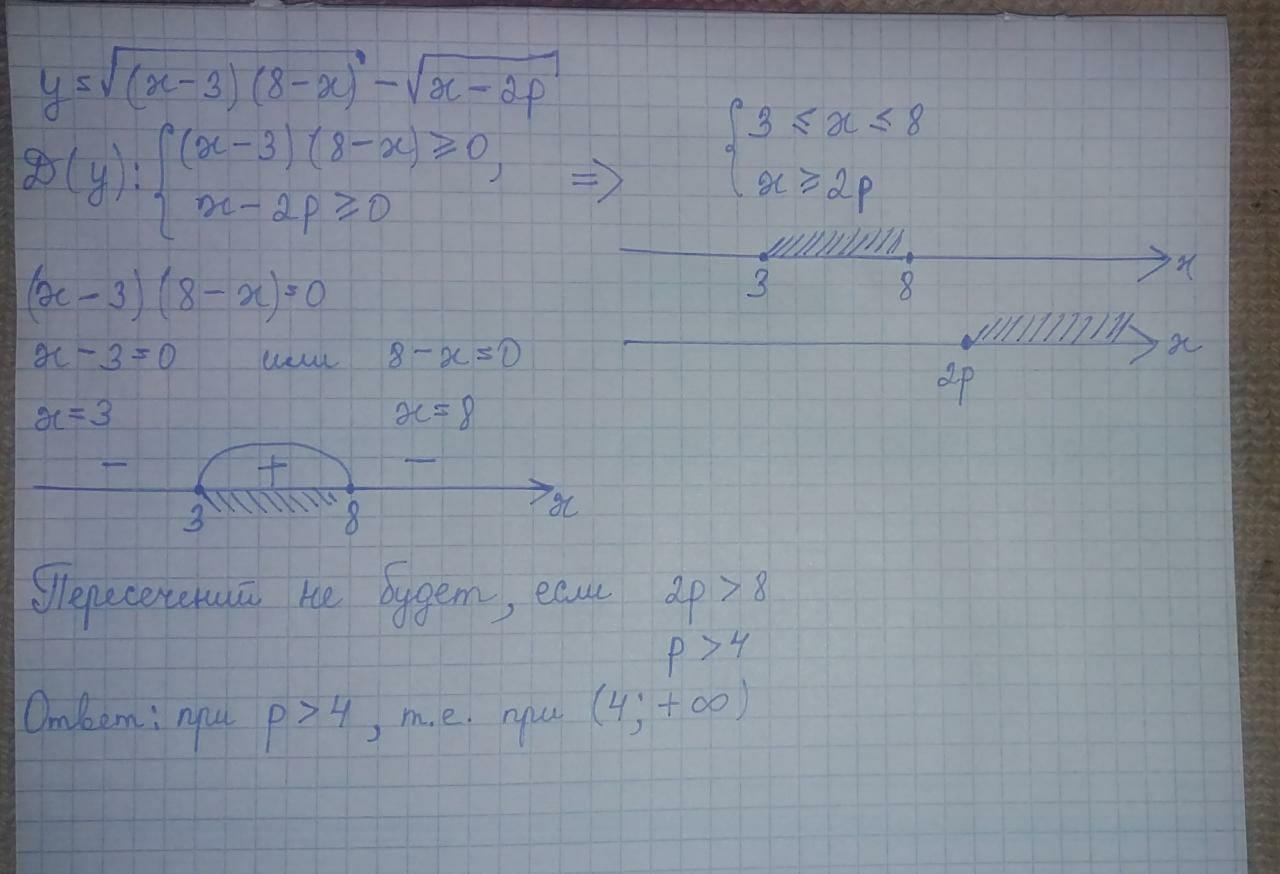 y = √(x-3)(8-x) - √x-2p
D(y): { (x-3)(8-x) ≥ 0,
x-2p ≥ 0
=> { 3 ≤ x ≤ 8
x ≥ 2p
3 8 x
2p x
(x-3)(8-x)=0
x-3=0 или 8-x=0
x=3 x=8
- + -
3 8 x
Пересечений не будет, если 2p > 8
p > 4
Ответ: при p > 4, т.е. при (4; +∞)